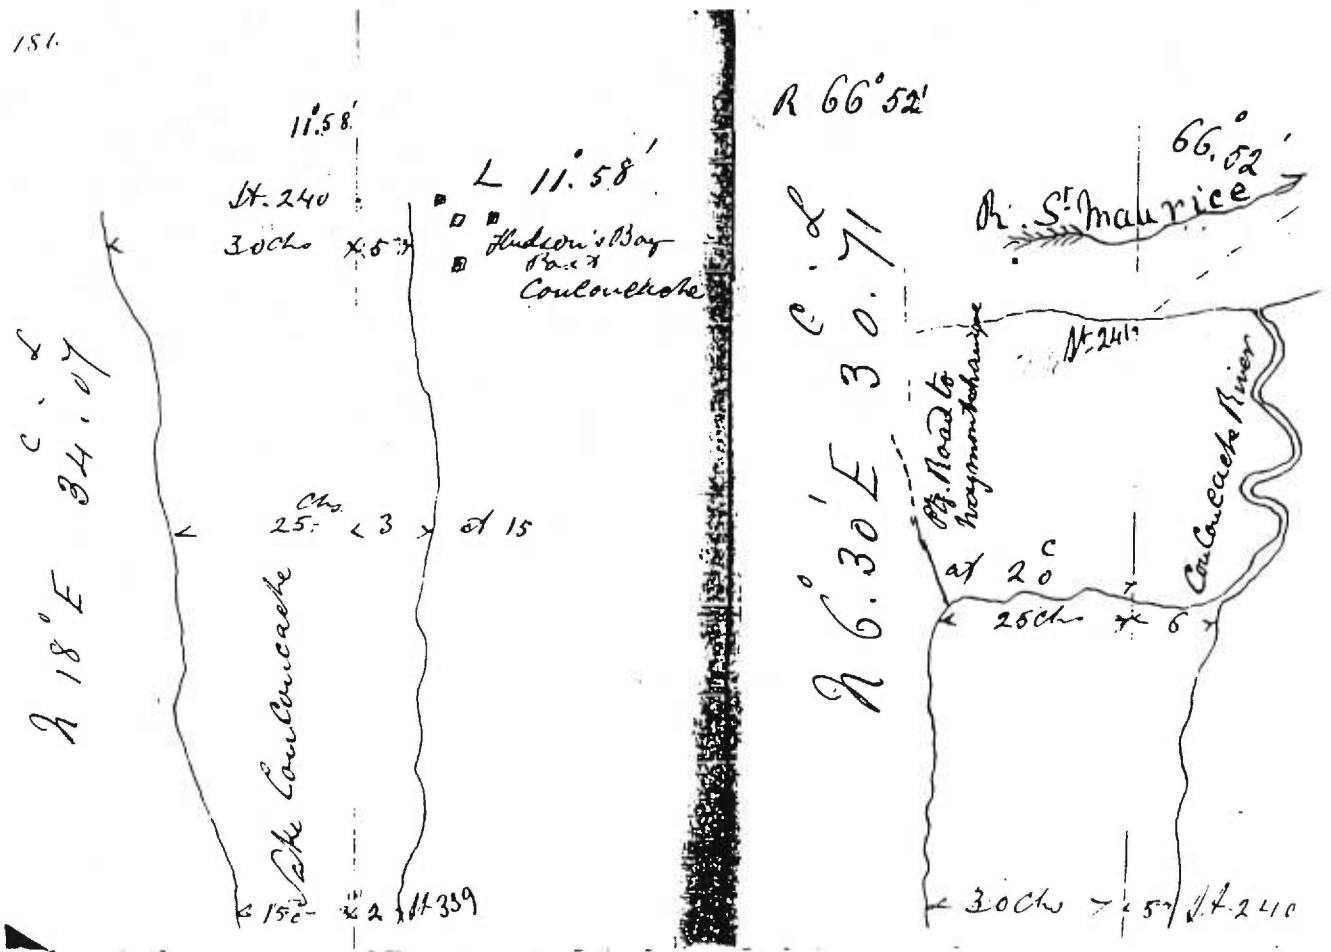 181.
11°.58'
St. 240
L 11°.58'
30 Chs × 5
Hudson's Bay
Post
Coucoucache
N 18° E 34.07
C. L
Chs
25 < 3 > at 15
Lake Coucoucache
15 c × 2 × St 339
R 66° 52'
66°.52'
R. St. Maurice
N 6°.30' E 30.71
C. L
St. 241
Ptg. Road to
Waymontachingue
Coucoucache River
at 20 C
25 Chs × 6
30 Chs > < 5 St. 240